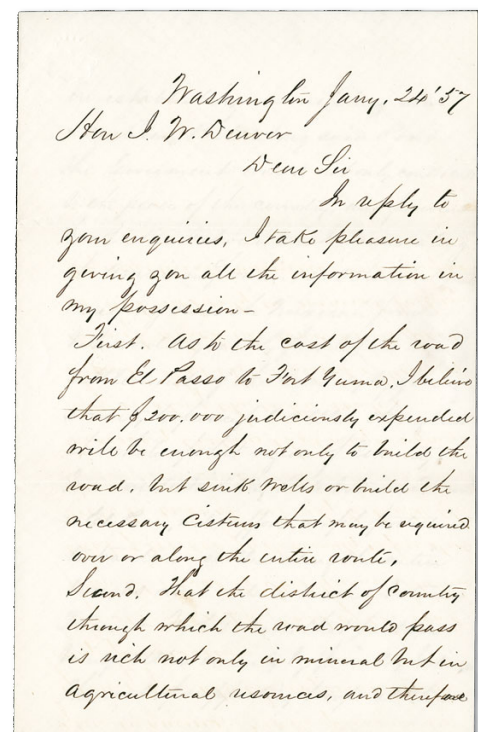 Washington Jany. 24 '57
Hon J. W. Denver
Dear Sir
In reply to
your enquiries, I take pleasure in
giving you all the information in
my possession -
First. As to the cost of the road
from El Passo to Fort Yuma, I believe
that $200.000 judiciously expended
will be enough not only to build the
road, but sink wells or build the
necessary Cisterns that may be required
over or along the entire route.
Second. That the district of country
through which the road would pass
is rich not only in mineral but in
agricultural resources, and therefore